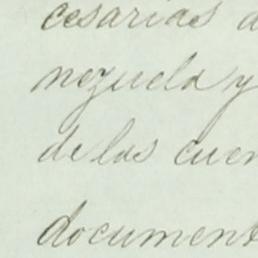 cesarias d
nezuela y
de las cuen
document